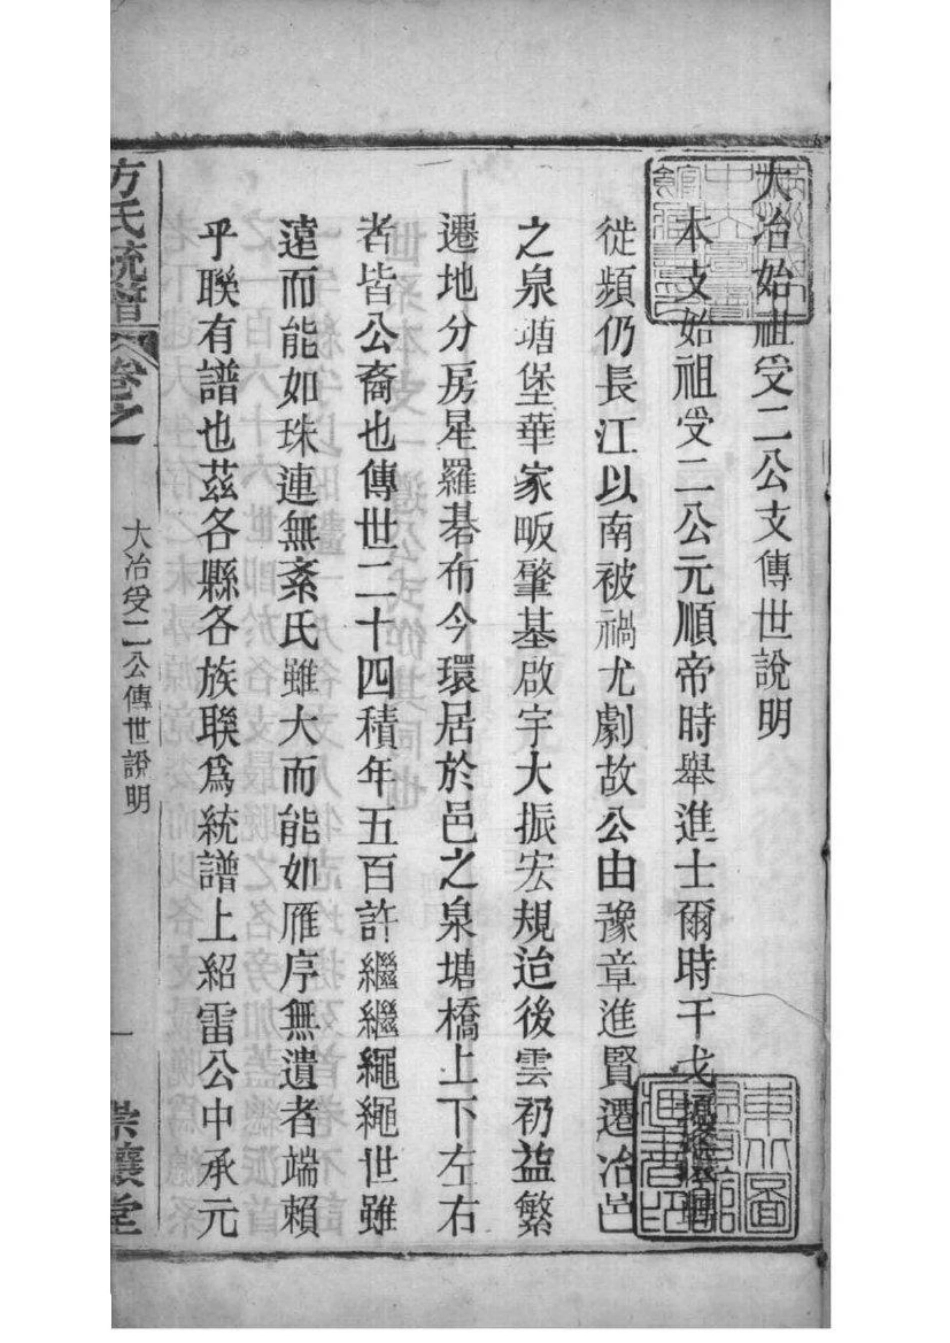 大冶始祖受二公支傳世說明
本支始祖受二公元順帝時舉進士爾時干戈擾攘
從頻仍長江以南被禍尤劇故公由豫章進賢遷冶邑
之泉塘堡華家畈肇基啟宇大振宏規迨後雲礽益繁
遷地分房星羅碁布今環居於邑之泉塘橋上下左右
者皆公裔也傳世二十四積年五百許繼繼繩繩世雖
遠而能如珠連無紊氏雖大而能如雁序無遺者端賴
乎聯有譜也茲各縣各族聯爲統譜上紹雷公中承元
方氏統譜
卷之
大冶受二公傳世說明
一
崇讓堂